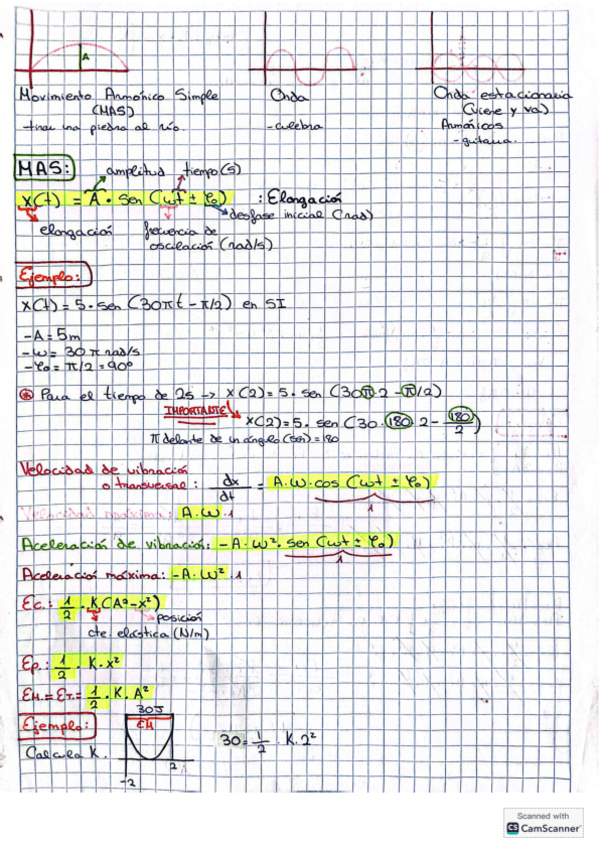 A
Movimiento Armónico Simple
(MAS)
- tirar una piedra al río.
Onda
- culebra
Onda estacionaria
(viene y va)
Armónicos
- guitarra.
MAS:
amplitud tiempo (s)
x(t) = A · sen (ωt ± φ₀) : Elongación
desfase inicial (rad)
elongación
frecuencia de
oscilación (rad/s)
Ejemplo:
x(t) = 5 · sen (30πt - π/2) en SI
- A = 5m
- ω = 30π rad/s
- φ₀ = π/2 = 90º
Para el tiempo de 2s → x(2) = 5 · sen (30π · 2 - π/2)
IMPORTANTE!
x(2) = 5 · sen (30 · 180 · 2 - 180/2)
π delante de un ángulo = 180
Velocidad de vibración
o transversal: dx/dt = A · ω · cos (ωt ± φ₀)
1
Velocidad máxima: A · ω · 1
Aceleración de vibración: -A · ω² · sen (ωt ± φ₀)
1
Aceleración máxima: -A · ω² · 1
Ec.: 1/2 · K (A² - x²)
posición
cte. elástica (N/m)
Ep.: 1/2 · K · x²
EM. = ET. = 1/2 · K · A²
30J
Ejemplo:
EM
30 = 1/2 · K · 2²
Calcula K.
2
-2
Scanned with
CS CamScanner